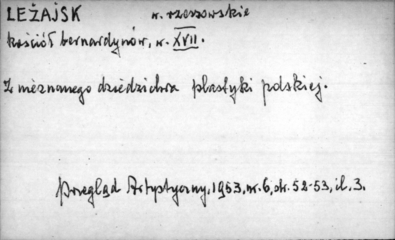 LEŻAJSK w. rzeszowskie
kościół bernardynów, w. XVII.
Z nieznanego dziedzictwa plastyki polskiej.
Przegląd Artystyczny, 1953, nr. 6, str. 52-53, il. 3.